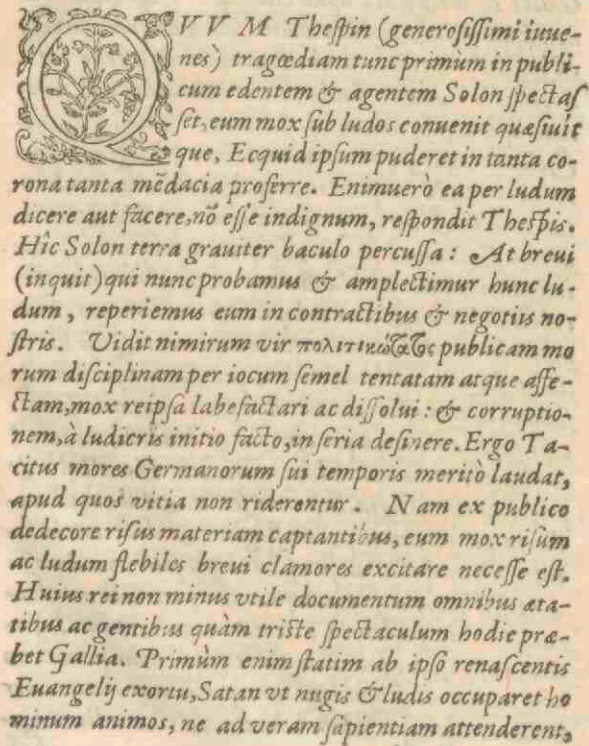 QVVM Thespin (generosissimi iuue-
nes) tragœdiam tunc primum in publi-
cum edentem & agentem Solon spectas
set, eum mox sub ludos conuenit quæsiuit
que, Ecquid ipsum puderet in tanta co-
rona tanta mēdacia proferre. Enimuerò ea per ludum
dicere aut facere, nō esse indignum, respondit Thespis.
Hîc Solon terra grauiter baculo percussa: At breui
(inquit) qui nunc probamus & amplectimur hunc lu-
dum, reperiemus eum in contractibus & negotiis no-
stris. Vidit nimirum vir πολιτικώτατος publicam mo
rum disciplinam per iocum semel tentatam atque affe-
ctam, mox reipsa labefactari ac dissolui: & corruptio-
nem, à ludicris initio facto, in seria desinere. Ergo Ta-
citus mores Germanorum sui temporis meritò laudat,
apud quos vitia non riderentur. Nam ex publico
dedecore risus materiam captantibus, eum mox risum
ac ludum flebiles breui clamores excitare necesse est.
Huius rei non minus vtile documentum omnibus æta-
tibus ac gentibus quàm triste spectaculum hodie præ-
bet Gallia. Primùm enim statim ab ipso renascentis
Euangelij exortu, Satan vt nugis & ludis occuparet ho
minum animos, ne ad veram sapientiam attenderent,